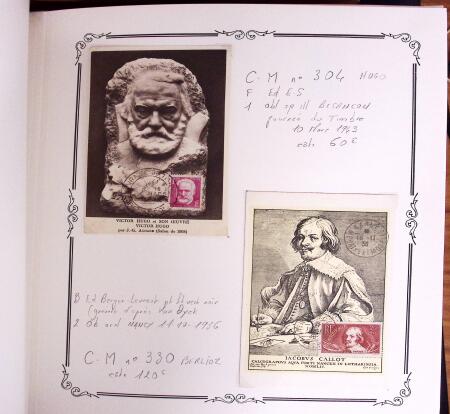 C-M n° 304 HUGO
F Ed E-S
1 obl sp ill BESANCON
journée du Timbre
10 Mars 1943
cote 60€
VICTOR HUGO et SON ŒUVRE
VICTOR HUGO
B Ed Berger-Levrault pt
(gravure d'après van Dyck
2 Ob ord NANCY 11-10-1936
C-M n° 330 BERLIOZ
cote 120€
IACOBUS CALLOT
CALCOGRAPHUS AQUA FORTI NANCEII IN LOTHARINGIA
NOBILIS